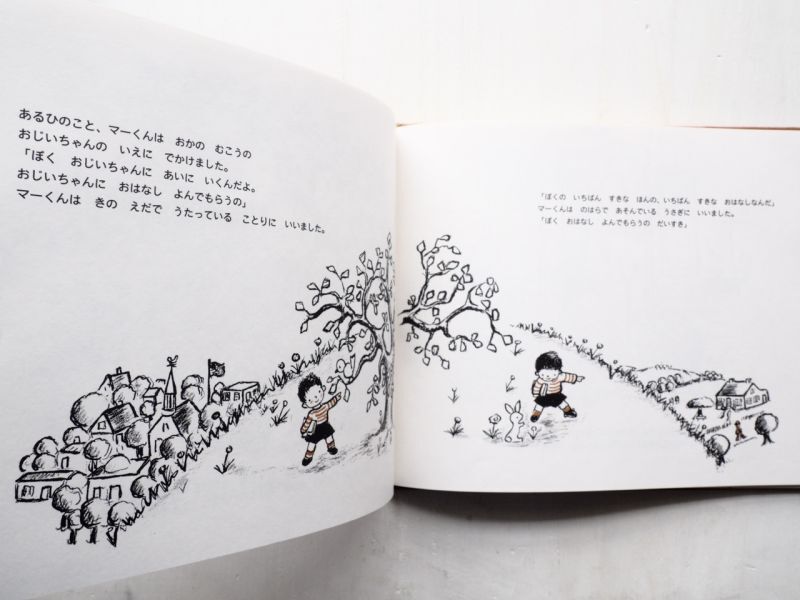 あるひのこと、マーくんは おかの むこうの
おじいちゃんの いえに でかけました。
「ぼく おじいちゃんに あいに いくんだよ。
おじいちゃんに おはなし よんでもらうの」
マーくんは きの えだで うたっている ことりに いいました。
「ぼくの いちばん すきな ほんの、いちばん すきな おはなしなんだ」
マーくんは のはらで あそんでいる うさぎに いいました。
「ぼく おはなし よんでもらうの だいすき」